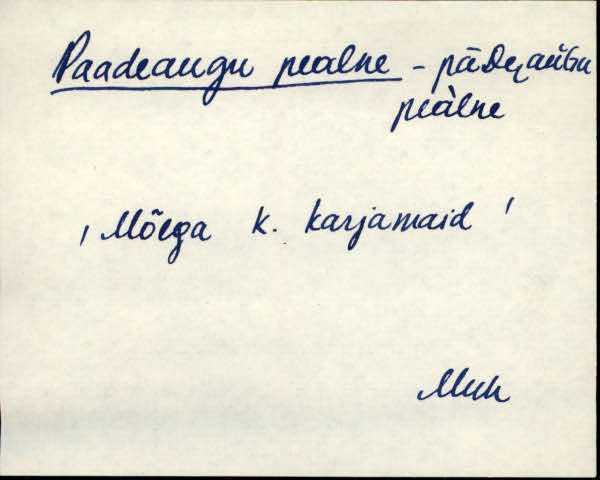 Paadeaugu pealne - pāDęauGu
peàlne
' Mõega k. karjamaid '
Muh